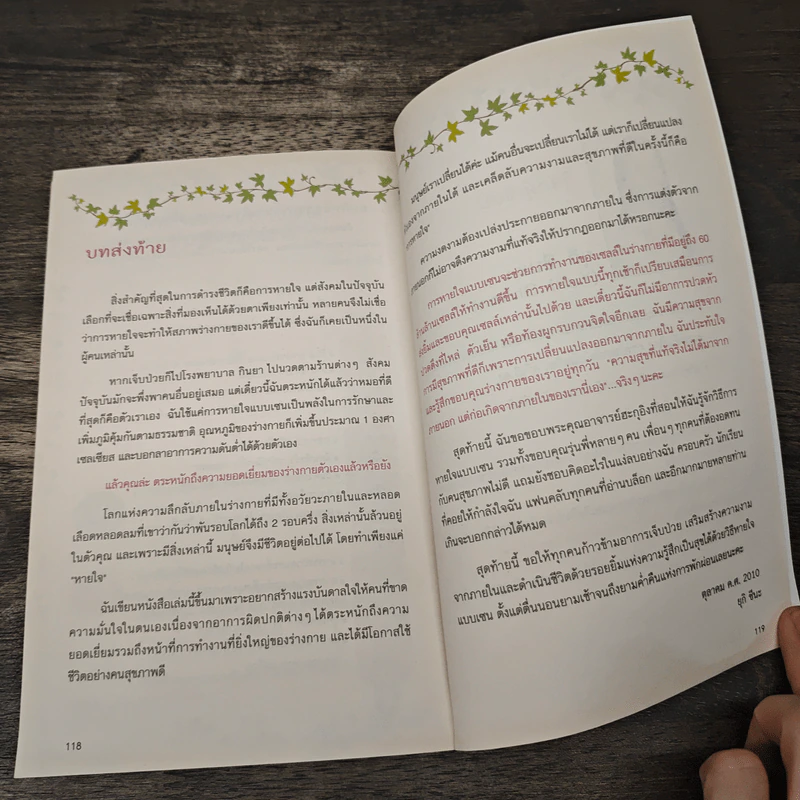 บทส่งท้าย
สิ่งสำคัญที่สุดในการดำรงชีวิตก็คือการหายใจ แต่สังคมในปัจจุบัน
เลือกที่จะเชื่อเฉพาะสิ่งที่มองเห็นได้ด้วยตาเพียงเท่านั้น หลายคนจึงไม่เชื่อ
ว่าการหายใจจะทำให้สภาพร่างกายของเราดีขึ้นได้ ซึ่งฉันก็เคยเป็นหนึ่งใน
ผู้คนเหล่านั้น
หากเจ็บป่วยก็ไปโรงพยาบาล กินยา ไปนวดตามร้านต่างๆ สังคม
ปัจจุบันมักจะพึ่งพาคนอื่นอยู่เสมอ แต่เดี๋ยวนี้ฉันตระหนักได้แล้วว่าหมอที่ดี
ที่สุดก็คือตัวเราเอง ฉันใช้แค่การหายใจแบบเซนเป็นพลังในการรักษาและ
เพิ่มภูมิคุ้มกันตามธรรมชาติ อุณหภูมิของร่างกายก็เพิ่มขึ้นประมาณ 1 องศา
เซลเซียส และบอกลาอาการความดันต่ำได้ด้วยตัวเอง
แล้วคุณล่ะ ตระหนักถึงความยอดเยี่ยมของร่างกายตัวเองแล้วหรือยัง
โลกแห่งความลึกลับภายในร่างกายที่มีทั้งอวัยวะภายในและหลอด
เลือดหลอดลมที่เขาว่ากันว่าพันรอบโลกได้ถึง 2 รอบครึ่ง สิ่งเหล่านั้นล้วนอยู่
ในตัวคุณ และเพราะมีสิ่งเหล่านี้ มนุษย์จึงมีชีวิตอยู่ต่อไปได้ โดยทำเพียงแค่
"หายใจ"
ฉันเขียนหนังสือเล่มนี้ขึ้นมาเพราะอยากสร้างแรงบันดาลใจให้คนที่ขาด
ความมั่นใจในตนเองเนื่องจากอาการผิดปกติต่างๆ ได้ตระหนักถึงความ
ยอดเยี่ยมรวมถึงหน้าที่การทำงานที่ยิ่งใหญ่ของร่างกาย และได้มีโอกาสใช้
ชีวิตอย่างคนสุขภาพดี
118
มนุษย์เราเปลี่ยนได้ค่ะ แม้คนอื่นจะเปลี่ยนเราไม่ได้ แต่เราก็เปลี่ยนแปลง
จากภายในได้ และเคล็ดลับความงามและสุขภาพที่ดีในครั้งนี้ก็คือ
"การหายใจ"
ความงดงามต้องเปล่งประกายออกมาจากภายใน ซึ่งการแต่งตัวจาก
ภายนอกก็ไม่อาจดึงความงามที่แท้จริงให้ปรากฏออกมาได้หรอกนะคะ
การหายใจแบบเซนจะช่วยการทำงานของเซลล์ในร่างกายที่มีอยู่ถึง 60
ล้านล้านเซลล์ให้ทำงานดีขึ้น การหายใจแบบนี้ทุกเช้าก็เปรียบเสมือนการ
ยิ้มและขอบคุณเซลล์เหล่านั้นไปด้วย และเดี๋ยวนี้ฉันก็ไม่มีอาการปวดหัว
ปวดตึงที่ไหล่ ตัวเย็น หรือท้องผูกรบกวนจิตใจอีกเลย ฉันมีความสุขจาก
การมีสุขภาพที่ดีก็เพราะการเปลี่ยนแปลงออกมาจากภายใน ฉันประทับใจ
และรู้สึกขอบคุณร่างกายของเราอยู่ทุกวัน "ความสุขที่แท้จริงไม่ได้มาจาก
ภายนอก แต่ก่อเกิดจากภายในของเรานี่เอง"...จริงๆ นะคะ
สุดท้ายนี้ ฉันขอขอบพระคุณอาจารย์ฮะกุอิงที่สอนให้ฉันรู้จักวิธีการ
หายใจแบบเซน รวมทั้งขอบคุณรุ่นพี่หลายๆ คน เพื่อนๆ ทุกคนที่ต้องอดทน
กับคนสุขภาพไม่ดี แถมยังชอบคิดอะไรในแง่ลบอย่างฉัน ครอบครัว นักเรียน
ที่คอยให้กำลังใจฉัน แฟนคลับทุกคนที่อ่านบล็อก และอีกมากมายหลายท่าน
เกินจะบอกกล่าวได้หมด
สุดท้ายนี้ ขอให้ทุกคนก้าวข้ามอาการเจ็บป่วย เสริมสร้างความงาม
จากภายในและดำเนินชีวิตด้วยรอยยิ้มแห่งความรู้สึกเป็นสุขได้ด้วยวิธีหายใจ
แบบเซน ตั้งแต่ตื่นนอนยามเช้าจนถึงยามค่ำคืนแห่งการพักผ่อนเลยนะคะ
ตุลาคม ค.ศ. 2010
ยูกิ ชีนะ
119